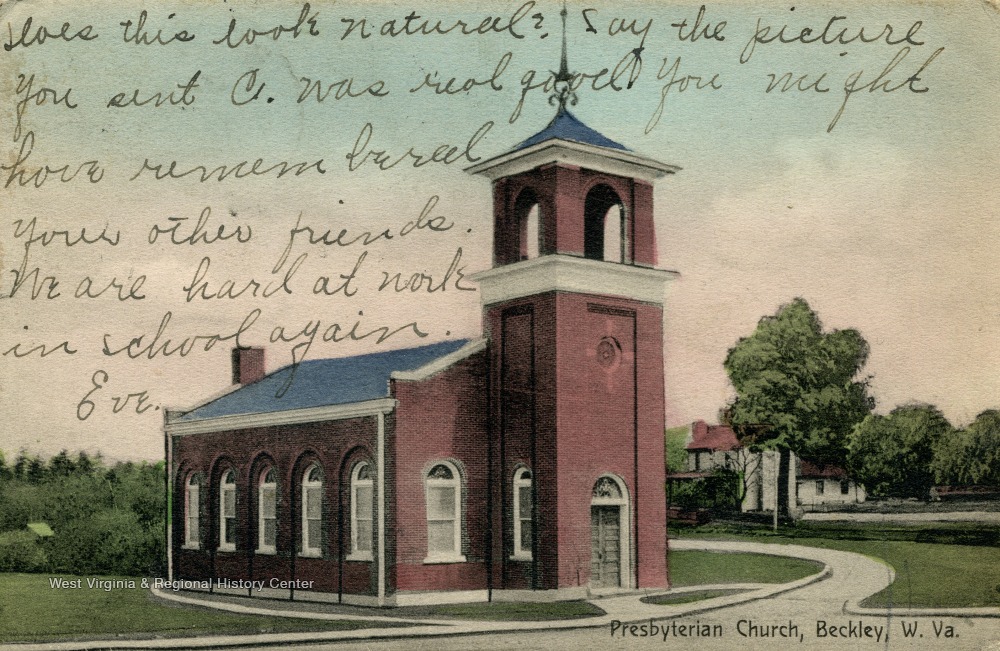 Does this look natural? Say the picture
You sent C. was real good. You might
have remembered
your other friends.
We are hard at work
in school again.
Eve.
West Virginia & Regional History Center
Presbyterian Church, Beckley, W. Va.